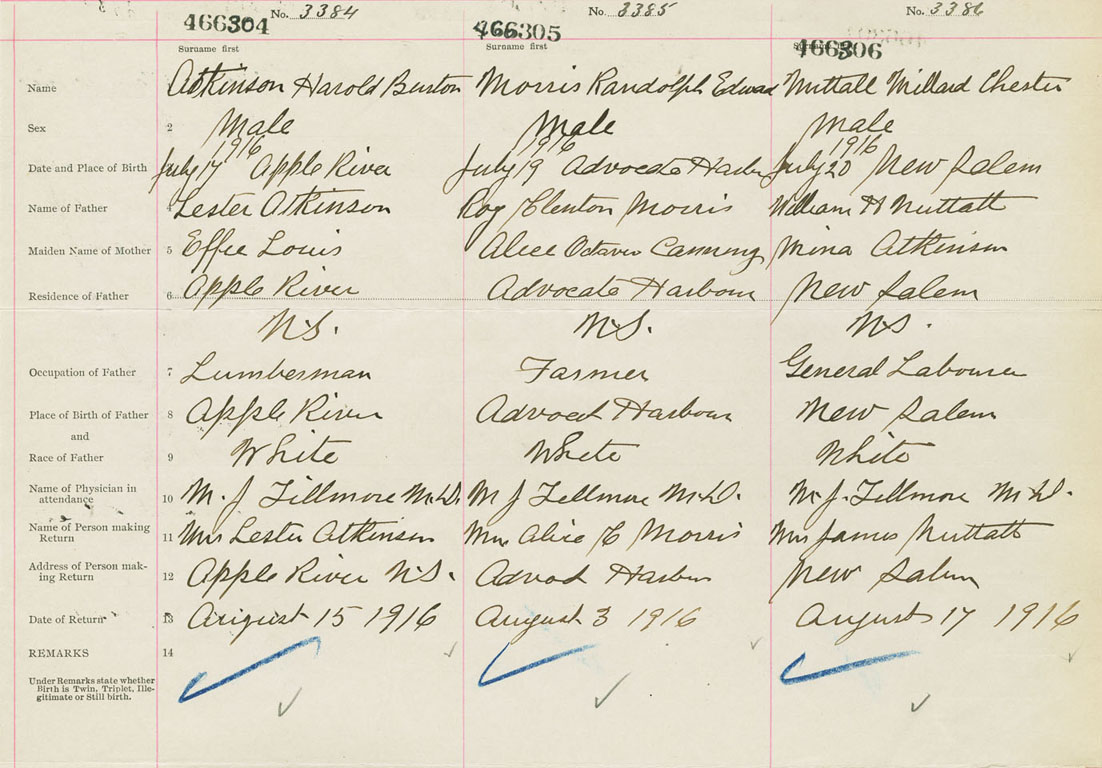 No. 3384 No. 3385 No. 3386
466304 466305 466306
Surname first Surname first Surname first
Name Atkinson Harold Burton Morris Randolph Edward Nuttall Millard Chester
Sex 2 Male Male Male
1916 1916 1916
Date and Place of Birth July 17 Apple River July 19 Advocate Harbor July 20 New Salem
Name of Father 4 Lester Atkinson Roy Clenton Morris William H Nuttall
Maiden Name of Mother 5 Effie Louis Alice Octavia Canning Mina Atkinson
Residence of Father 6 Apple River Advocate Harbour New Salem
N.S. N.S. N.S.
Occupation of Father 7 Lumberman Farmer General Labourer
Place of Birth of Father 8 Apple River Advocat Harbour New Salem
and
Race of Father 9 White White White
Name of Physician in
attendance 10 M. J Fillmore M.D. M J Fillmore M.D. M. J. Fillmore M.D.
Name of Person making
Return 11 Mrs Lester Atkinson Mrs Alice C Morris Mrs James Nuttall
Address of Person mak-
ing Return 12 Apple River N.S. Advocat Harbor New Salem
Date of Return 13 August 15 1916 August 3 1916 August 17 1916
REMARKS 14
Under Remarks state whether
Birth is Twin, Triplet, Ille-
gitimate or Still birth.